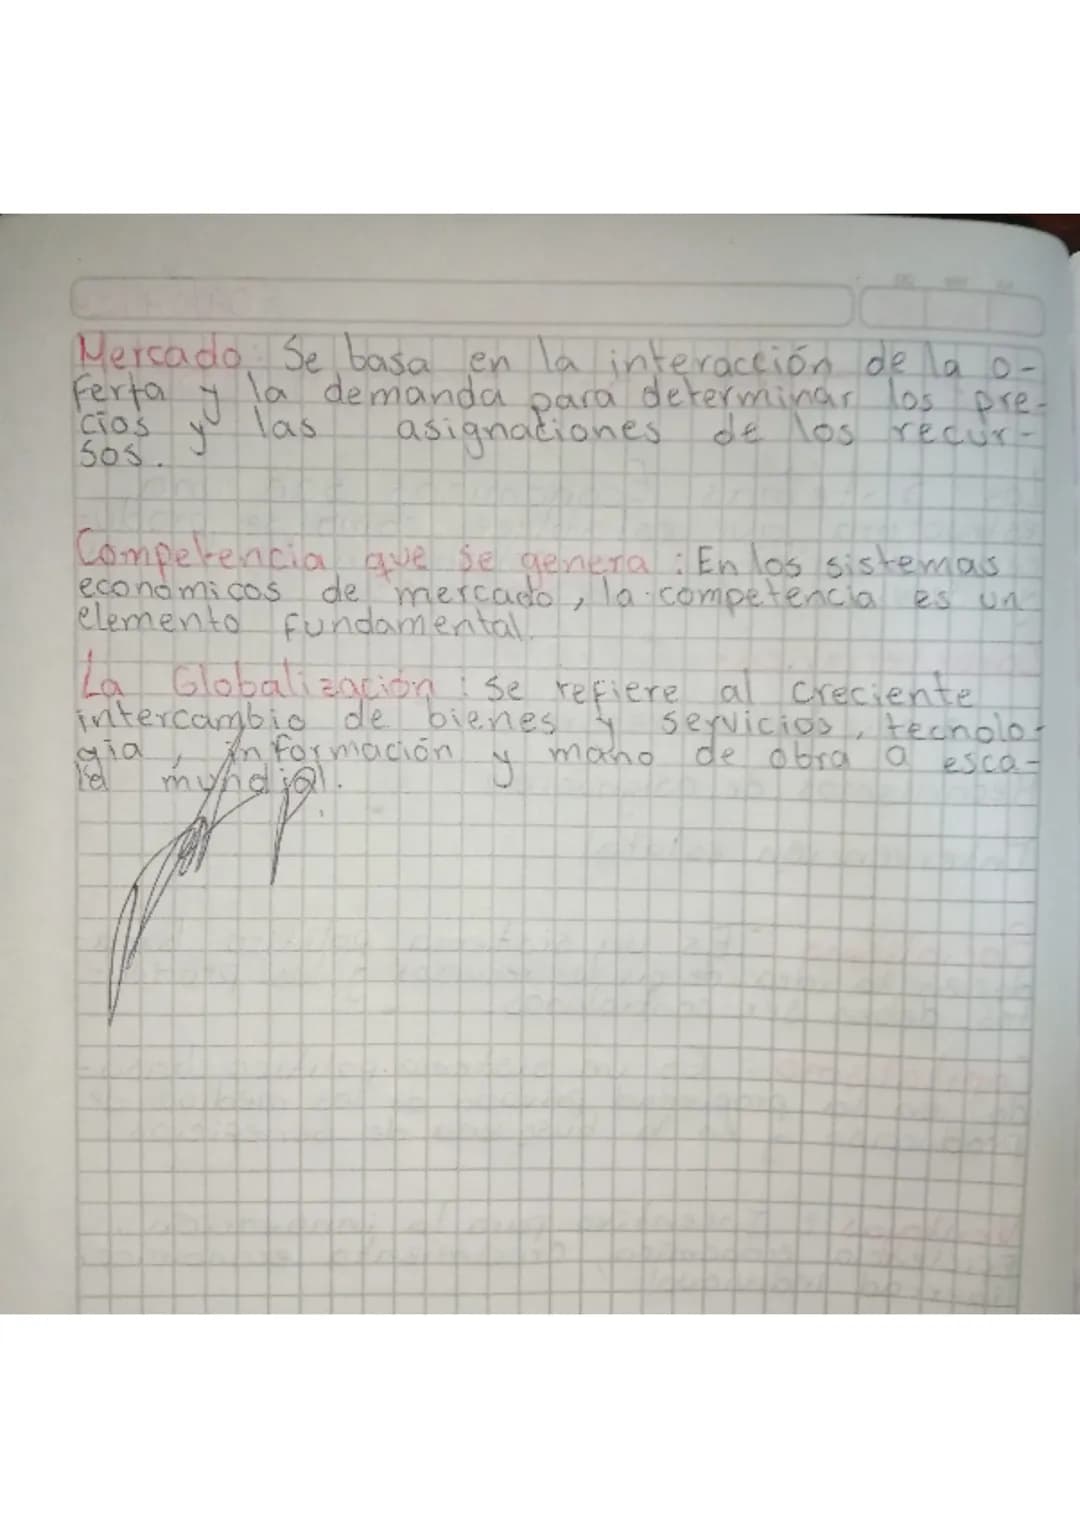 Mercado: Se basa en la interacción de la o-
ferta y la demanda para determinar los pre-
cios y las asignaciones de los recur-
sos.
Competencia que se genera: En los sistemas
económicos de mercado, la competencia es un
elemento fundamental.
La Globalización: se refiere al creciente
intercambio de bienes y servicios, tecnolo-
gia, información y mano de obra a esca-
la mundial.